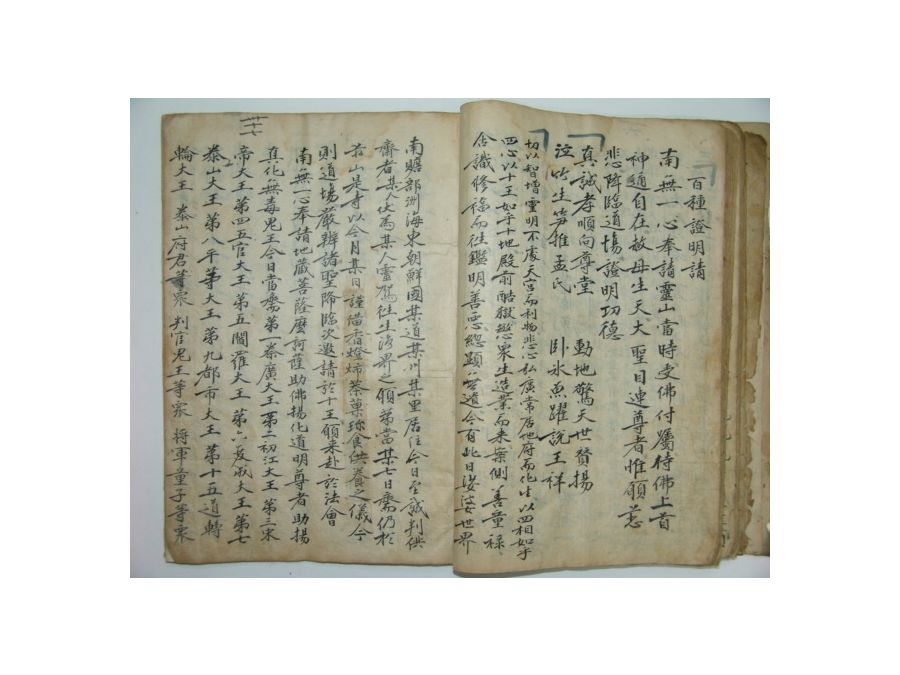 百種證明請
南無一心奉請靈山當時受佛付囑待佛上首
神通自在救母生天大聖目連尊者惟願慈
悲降臨道場證明功德
真誠孝順向尊堂 動地驚天世贊揚
泣竹生笋推孟氏 卧氷魚躍說王祥
切以智增靈明不處天宮而利物悲心弘廣常居地府而化生以四相如乎
四心以十王如乎十地殿前酷獄愍衆生造業而来案側善童祿
含識修福而徃鑑明善惡總顯公道今有此日娑婆世界
南贍部洲海東朝鮮國某道某州某里居住今日至誠判供
齋者某人伏為某人靈駕往生淨界之願第當某七日齋仍於
某山是寺以今月某日謹備香燈燭茶菓珎食供養之儀今
則道場嚴辦諸聖降臨次邀請於十王願来赴於法會
南無一心奉請地藏菩薩摩訶薩助佛揚化道明尊者助揚
真化無毒鬼王今日當齋第一秦廣大王第二初江大王第三宋
帝大王第四五官大王第五閻羅大王第六變成大王第七
泰山大王第八平等大王第九都市大王第十五道轉
輪大王 泰山府君等衆 判官鬼王等衆 將軍童子等衆